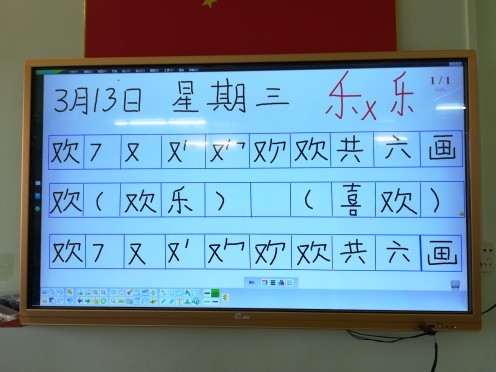 3月13日 星期三 乐x乐 1/1
欢 ㇇ 又 欢 欢 共 六 画
欢(欢乐) (喜欢)
欢 ㇇ 又 欢 欢 共 六 画